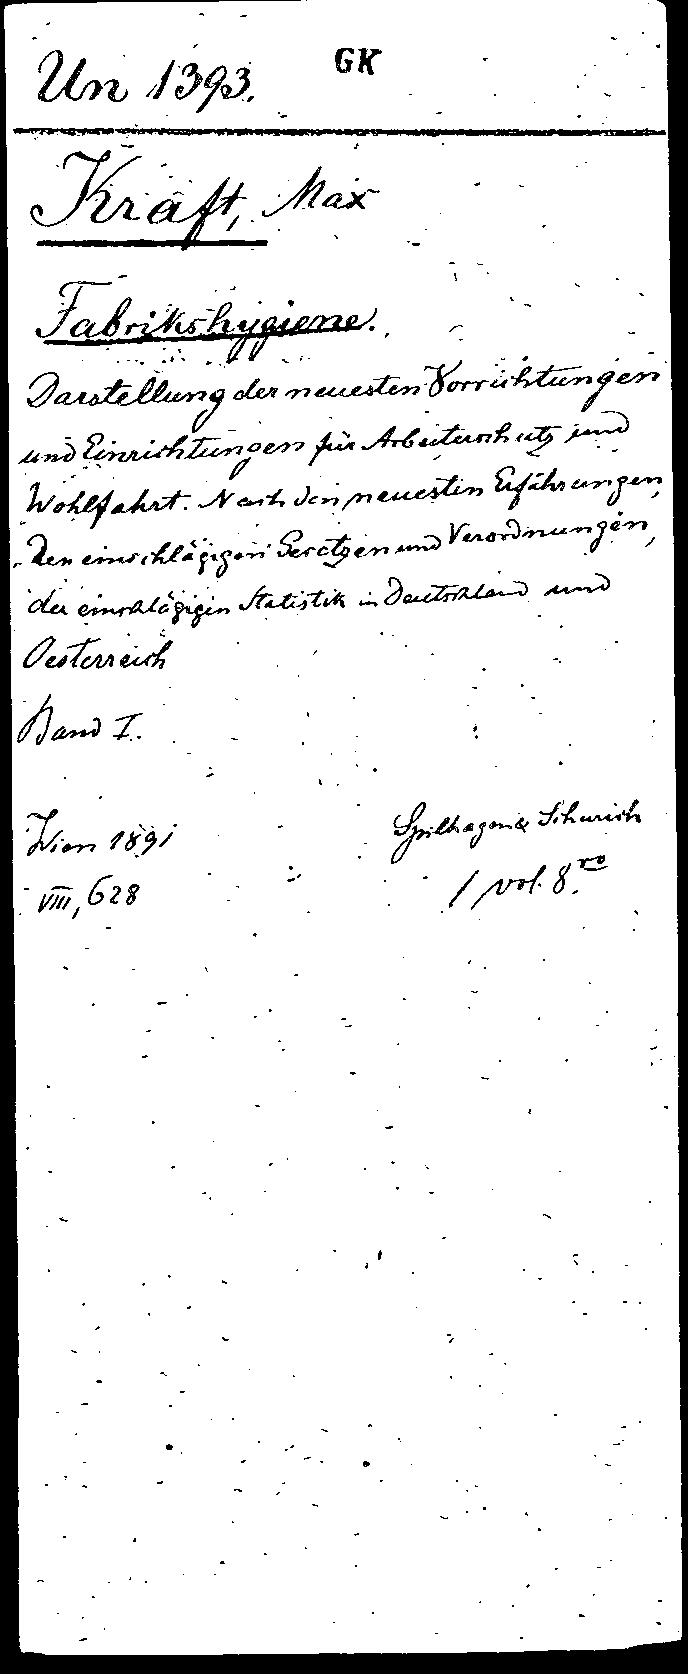 Un 1393. GK
Kraft, Max
Fabrikshygiene.
Darstellung der neuesten Vorrichtungen
und Einrichtungen für Arbeiterschutz und
Wohlfahrt. Nach den neuesten Erfahrungen,
den einschlägigen Gesetzen und Verordnungen,
der einschlägigen Statistik in Deutschland und
Oesterreich
Band I.
Wien 1891 Spielhagen & Schurich
VIII, 628 1 vol. 8.ro